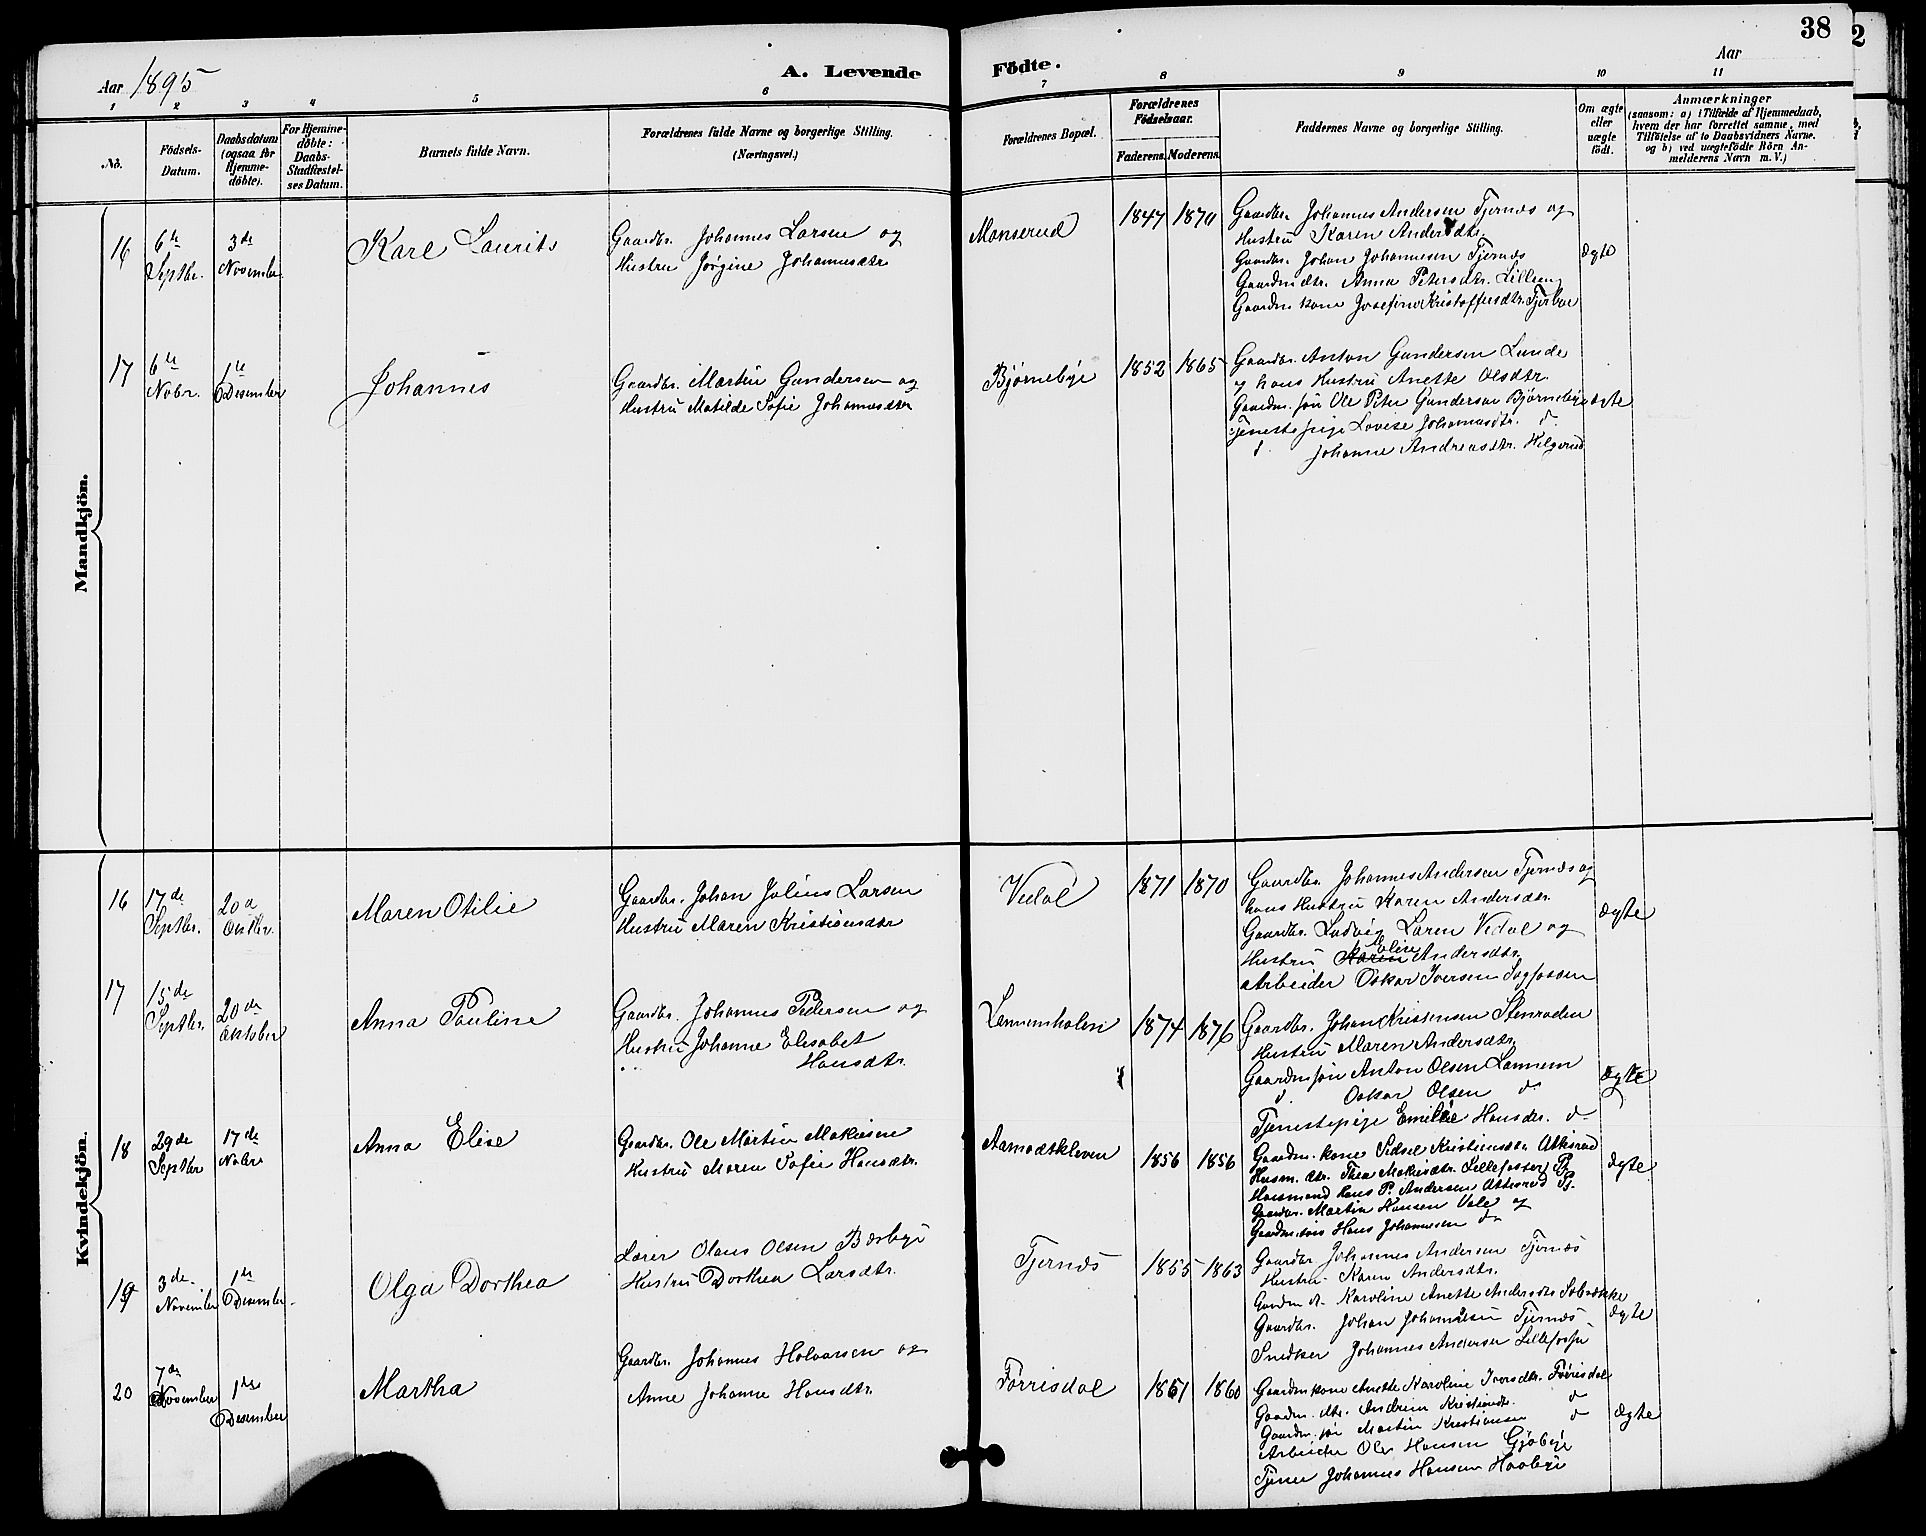 38
2
Aar 1895
A. Levende Födte.
Aar
1 2 3 4 5 6 7 8 9 10 11
No.
Födsels-Datum.
Daabsdatum (ogsaa for Hjemme-döbte).
For Hjemme-döbte: Daabs-Stadfæstel-ses Datum.
Barnets fulde Navn.
Forældrenes fulde Navne og borgerlige Stilling. (Næringsvei.)
Forældrenes Bopæl.
Forældrenes Födselsaar.
Faderens. Moderens.
Faddernes Navne og borgerlige Stilling.
Om ægte eller uægte födt.
Anmærkninger
(saasom: a) i Tilfælde af Hjemmedaab,
hvem der har forrettet samme, med
Tilföielse af to Daabsvidners Navne.
og b) ved uægtefödte Börn An-
melderens Navn m. V.)
Mandkjön.
16
6te Septbr.
3de November
Karl Laurits
Gaardbr. Johannes Larsen og
Hustru Jørgine Johannesdtr
Monserud
1847 1870
Gaardbr. Johannes Andersen Tjernæs og
Hustru Karen Andersdtr.
Gaardbr. Johan Johannesen Tjernæs
Gaardm dtr. Anna Petersdtr. Lilleng
Gaardm kone Josefine Kristoffersdtr.
ægte
17
6te Nobr.
1te Desember
Johannes
Gaardbr. Martin Gundersen og
Hustru Matilde Sofie Johannesdtr
Bjørnebye
1852 1865
Gaardbr. Anton Gundersen Lunde
og hans Hustru Anette Olsdtr.
Gaardm. søn Ole Peter Gundersen Bjørnebye
Tjenestepige Lovise Johannesdtr. d.
d. Johanne Andreasdtr. Helgerud
ægte
Kvindekjön.
16
17de Septbr.
20d Oktbr.
Maren Otilie
Gaardbr. Johan Julius Larsen
Hustru Maren Kristiansdtr
Vedal
1871 1870
Gaardbr. Johannes Andersen Tjernæs og
hans Hustru Karen Andersdtr.
Gaardbr. Ludvig Larsen Vedal og
Hustru Karen Elise Andersdtr.
Arbeider Oskar Iversen Sagfossen
ægte
17
15de Septbr.
20de Oktober
Anna Pauline
Gaardbr. Johannes Pedersen og
Hustru Johanne Elisabet
Hansdtr.
1874 1876
Gaardbr. Johan Kristensen Stenraden
Hustru Maren Andersdtr.
Gaardm søn Anton Olsen Lannem
d. Oskar Olsen d
Tjenestepige Emilie Hansdtr. d
ægte
18
29de Septbr
17de Nobr
Anna Elise
Gaardbr. Ole Martin Mathisen
Hustru Maren Sofie Hansdtr.
Aamodtkleven
1856 1856
Gaardm. kone Sidsel Kristiansdtr.
Husm. dtr. Thea
Husmand Hans P. Andersen
Gaardbr. Martin Hansen Vale og
Gaardm. søn Hans Johannesen d
ægte
19
3de November
1te Desember
Olga Dorthea
Lærer Olaus Olsen Bærbye
Hustru Dorthea Larsdtr.
Tjernæs
1855 1863
Gaardbr Johannes Andersen Tjernæs
Hustru Karen Andersdtr.
Gaardm d. Karoline Anette Andersdtr
Gaardbr. Johan Johannesen Tjernæs
Snedker Johannes Andersen Lillefosse
ægte
20
7de November
1te Desember
Martha
Gaardbr. Johannes Halvorsen og
Anne Johanne Hansdtr.
Førrisdal
1861 1860
Gaardm kone Anette Karoline Iversdtr. Førrisdal
Gaardm. dtr. Andrea Kristiansdtr. d
Gaardm. søn Martin Kristiansen d
Arbeider Ole Hansen Gjøbye
Tjener Johannes Hansen Haabye
ægte